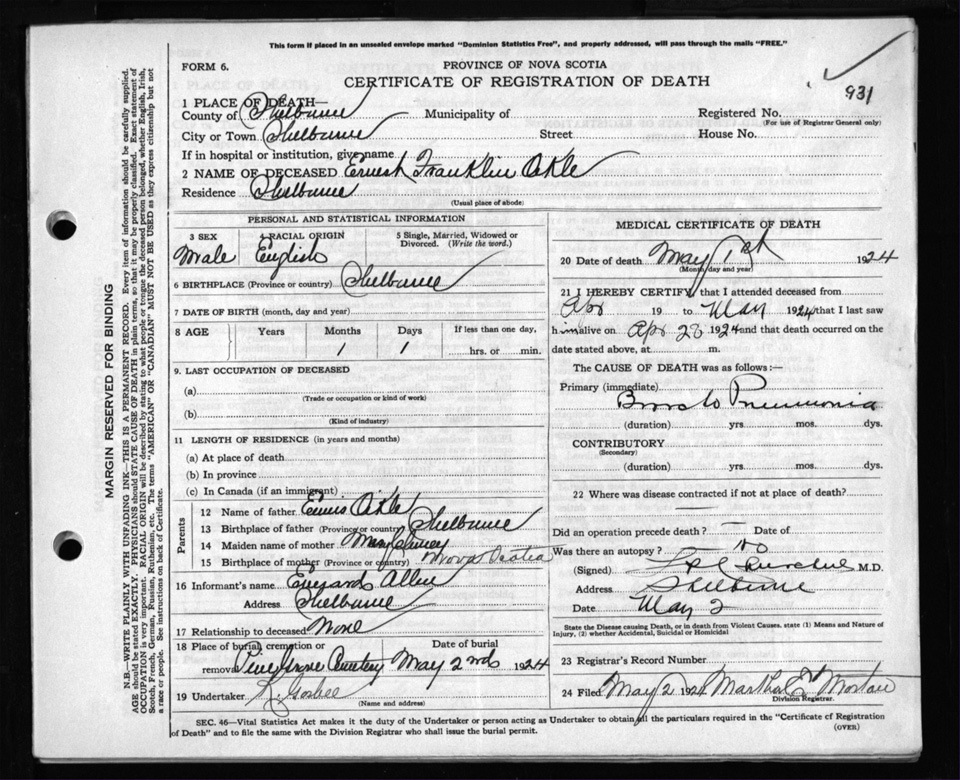 This form if placed in an unsealed envelope marked "Dominion Statistics Free", and properly addressed, will pass through the mails "FREE."
FORM 6.
PROVINCE OF NOVA SCOTIA
CERTIFICATE OF REGISTRATION OF DEATH
931
1 PLACE OF DEATH—
County of Shelburne Municipality of Registered No.
(For use of Registrar General only)
City or Town Shelburne Street House No.
If in hospital or institution, give name
2 NAME OF DECEASED Ernest Franklin
Residence Shelburne
(Usual place of abode)
PERSONAL AND STATISTICAL INFORMATION
3 SEX 4 RACIAL ORIGIN 5 Single, Married, Widowed or Divorced. (Write the word.)
Male English
6 BIRTHPLACE (Province or country) Shelburne
7 DATE OF BIRTH (month, day and year)
8 AGE Years Months Days If less than one day,
1 1 hrs. or min.
9. LAST OCCUPATION OF DECEASED
(a)
(Trade or occupation or kind of work)
(b)
(Kind of industry)
11 LENGTH OF RESIDENCE (in years and months)
(a) At place of death
(b) In province
(c) In Canada (if an immigrant)
Parents
12 Name of father
13 Birthplace of father (Province or country) Shelburne
14 Maiden name of mother Mary
15 Birthplace of mother (Province or country) Nova Scotia
16 Informant's name Allen
Address Shelburne
17 Relationship to deceased None
18 Place of burial, cremation or removal Pine Grove Cemetery
Date of burial May 2nd 1924
19 Undertaker
(Name and address)
MEDICAL CERTIFICATE OF DEATH
20 Date of death May 1st 1924
(Month, day and year)
21 I HEREBY CERTIFY, that I attended deceased from
Apr 19 to May 1924 that I last saw
him alive on Apr 28 1924 and that death occurred on
date stated above, at m.
The CAUSE OF DEATH was as follows:—
Primary (immediate)
Broncho Pneumonia
(duration) yrs. mos. dys.
CONTRIBUTORY
(Secondary)
(duration) yrs. mos. dys.
22 Where was disease contracted if not at place of death?
—
Did an operation precede death? — Date of
Was there an autopsy? no
(Signed) M.D.
Address Shelburne
Date May 2
State the Disease causing Death, or in death from Violent Causes, state (1) Means and Nature of
Injury, (2) whether Accidental, Suicidal or Homicidal
23 Registrar's Record Number
24 Filed May 2 192 Martha Morton
Division Registrar.
SEC. 46—Vital Statistics Act makes it the duty of the Undertaker or person acting as Undertaker to obtain all the particulars required in the "Certificate of Registration
of Death" and to file the same with the Division Registrar who shall issue the burial permit.
(OVER)
MARGIN RESERVED FOR BINDING
N.B.—WRITE PLAINLY WITH UNFADING INK—THIS IS A PERMANENT RECORD. Every item of information should be carefully supplied.
AGE should be stated EXACTLY. PHYSICIANS should STATE CAUSE OF DEATH in plain terms, so that it may be properly classified. Exact statement of
OCCUPATION is very important. RACIAL ORIGIN will be described by stating to what people or tongue the deceased person belonged, whether English, Irish,
Scotch, French, German, Russian, Ruthenian, etc. The terms "AMERICAN" OR "CANADIAN" MUST NOT BE USED as they express citizenship but not
a race or people. See instructions on back of Certificate.